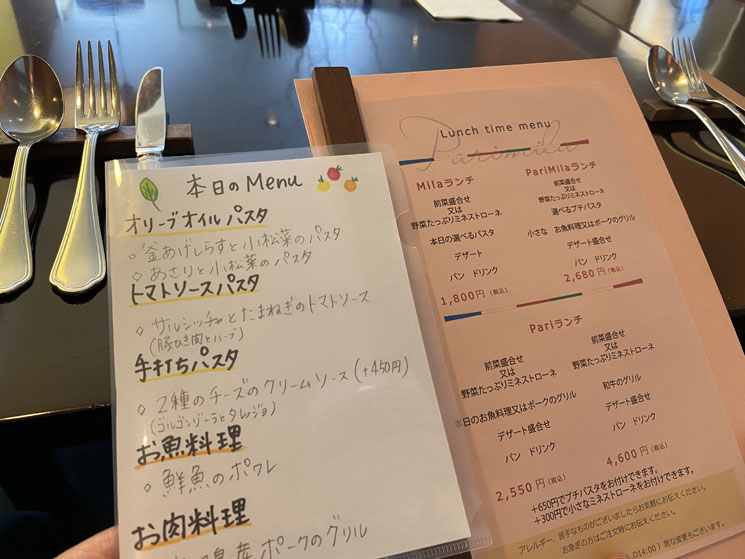 本日のMenu
オリーブオイルパスタ
◇釜あげしらすと小松菜のパスタ
◇あさりと小松菜のパスタ
トマトソースパスタ
◇サルシッチャとたまねぎのトマトソース
(豚ひき肉とハーブ)
手打ちパスタ
◇2種のチーズのクリームソース(+450円)
(ゴルゴンゾーラとタレッジョ)
お魚料理
◇鮮魚のポワレ
お肉料理
産ポークのグリル
Lunch time menu
Parimila
Milaランチ
前菜盛合せ
又は
野菜たっぷりミネストローネ
本日の選べるパスタ
デザート
パン ドリンク
1,800円(税込)
PariMilaランチ
前菜盛合せ
又は
野菜たっぷりミネストローネ
選べるプチパスタ
小さな お魚料理又はポークのグリル
デザート盛合せ
パン ドリンク
2,680円(税込)
Pariランチ
前菜盛合せ
又は
野菜たっぷりミネストローネ
本日のお魚料理又はポークのグリル
デザート盛合せ
パン ドリンク
2,550円(税込)
前菜盛合せ
又は
野菜たっぷりミネストローネ
和牛のグリル
デザート盛合せ
パン ドリンク
4,600円(税込)
+650円でプチパスタをお付けできます。
+300円で小さなミネストローネをお付けできます。
アレルギー、苦手なものがございましたらお気軽にお伝えください。
お急ぎの方はご注文時にお伝えください。
L.O14:00) 急な変更もございます。